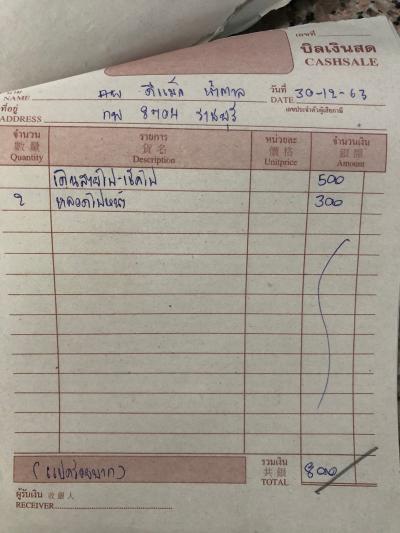 เลขที่
บิลเงินสด
CASHSALE
นาม NAME ดีแม็ก น้ำตาล วันที่ DATE 30-12-63
ที่อยู่ ADDRESS กพ 8704 ราชบุรี เลขประจำตัวผู้เสียภาษี
จำนวน รายการ หน่วยละ จำนวนเงิน
數量 貨名 價格 銀額
Quantity Description Unitprice Amount
เดินสายไฟ-เช็คไฟ 500
2 หลอดไฟหน้า 300
(แปดร้อยบาท) รวมเงิน 共銀 TOTAL 800
ผู้รับเงิน 收銀人
RECEIVER